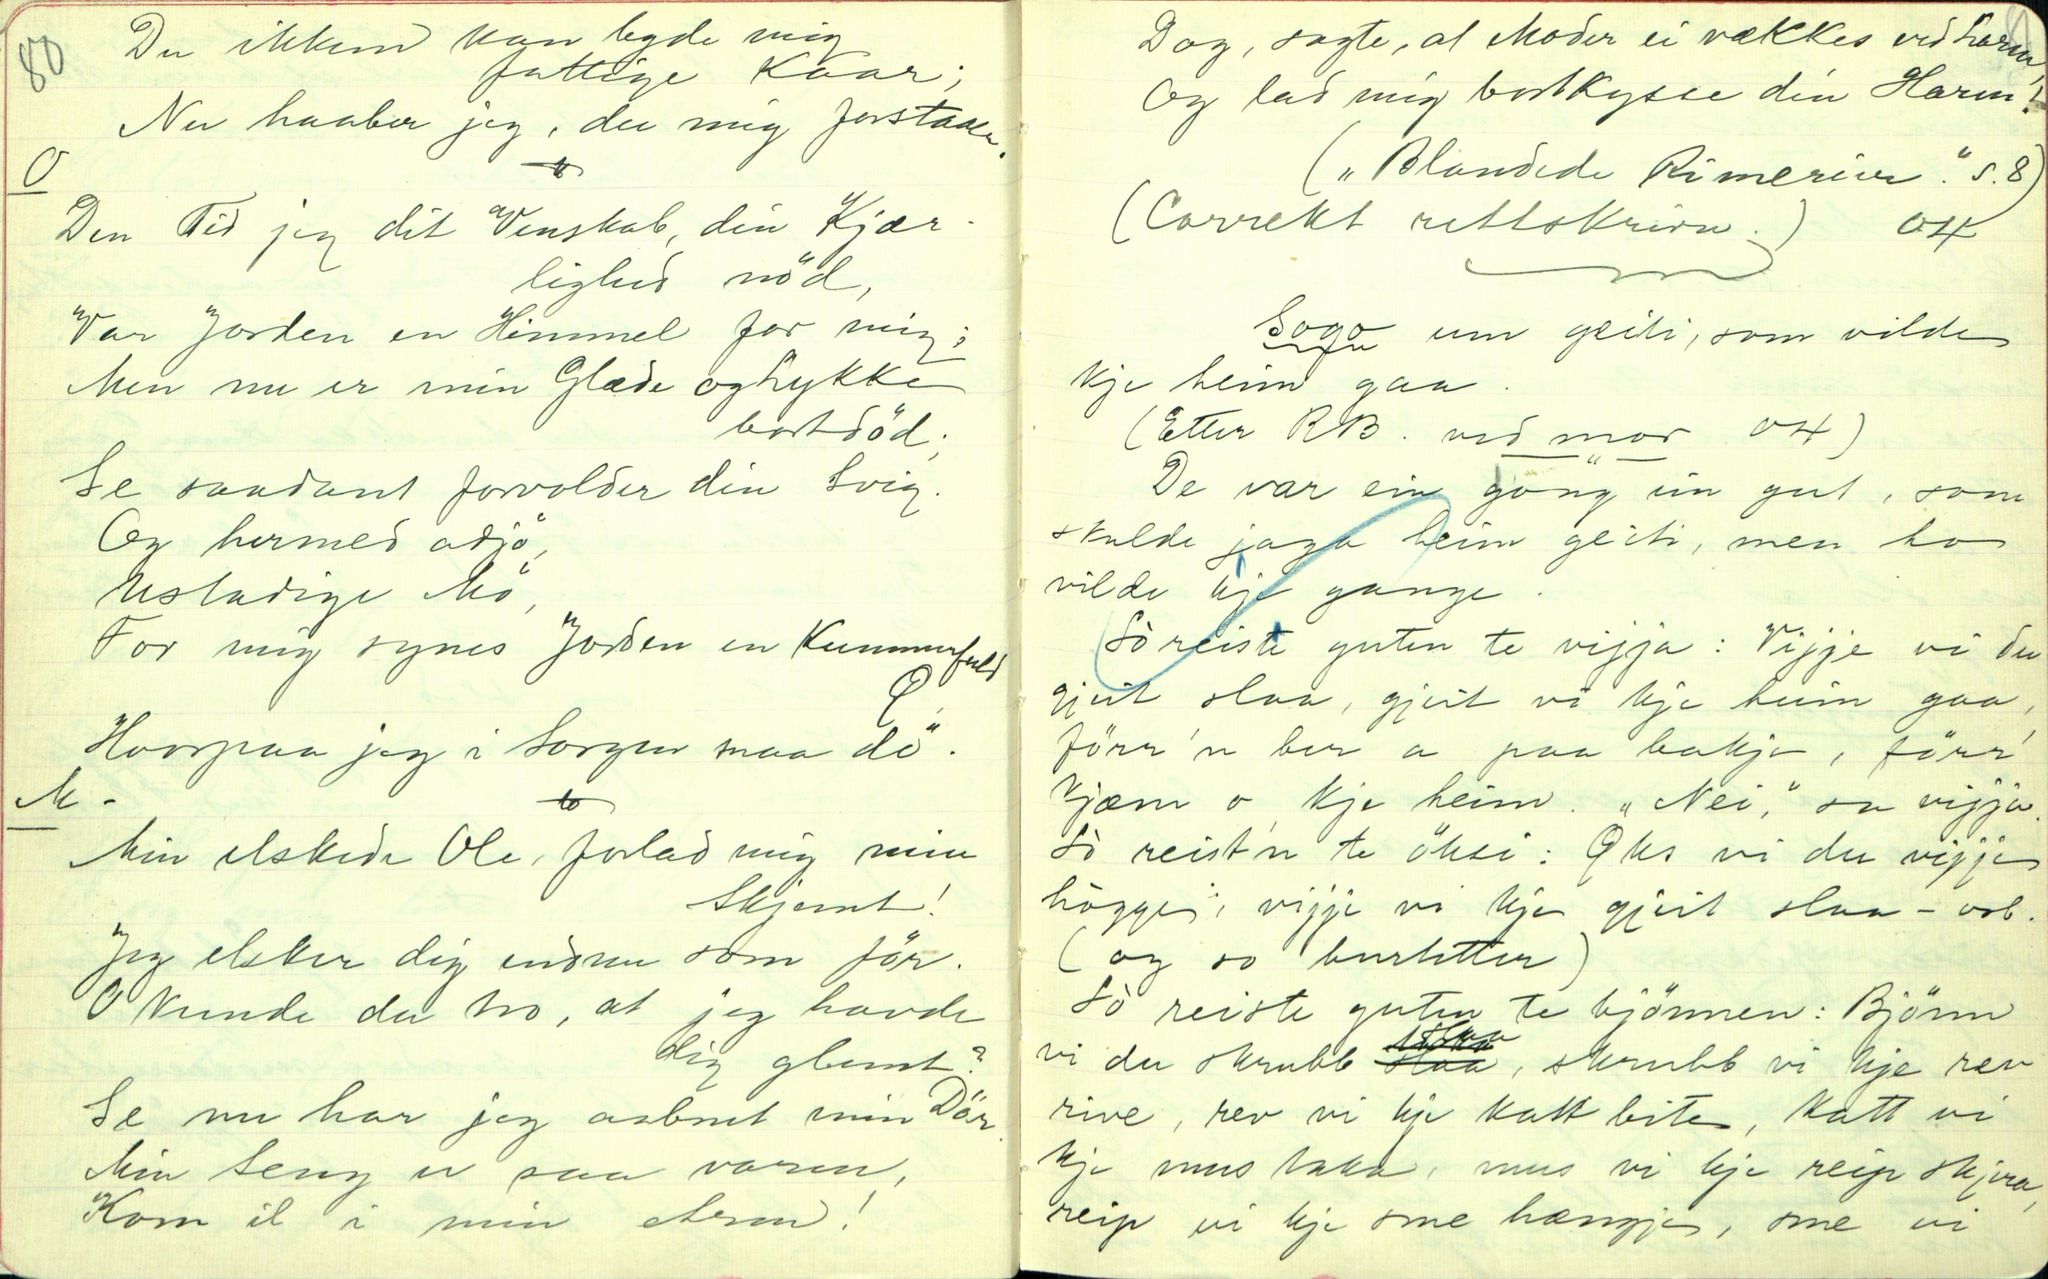 80
Du ikkun kan byde mig
fattige Kaar;
Nu haaber jeg, du mig forstaaer.
O
Den Tid jeg dit Venskab, din Kjær-
lighed nöd,
Var Jorden en Himmel for mig;
Men nu er min Glæde og Lykke
bortdöd;
Se saadant forvolder din Svig.
Og hermed adjö,
Ustadige Mö,
For mig synes Jorden en Kummerfuld
Ö,
Hvorpaa jeg i Sorgen maa dö.
M.
Min elskede Ole, forlad mig min
Skjemt!
Jeg elsker dig endnu som för.
O kunde du tro, at jeg havde
dig glemt?
Se nu har jeg aabnet min Dör.
Min Seng er saa varm,
Kom il i min Arm!
Dog, sagte, at Moder ei vækkes ved Larm,
Og lad mig bortkysse din Harm!
(„Blandede Rimerier." S. 8)
(Correkt rettskrivn.) OH
Soga um geiti, som vilde
kje heim gaa.
(Etter RB. ved mor OH)
De var ein gong ein gut, som
skulde jaga heim geiti, men ho
vilde kje gange.
Sò reiste guten te vijja: Vijje vi du
gjeit slaa, gjeit vi kje heim gaa,
förr'n ber a paa bakje, förr'
kjæm o kje heim. „Nei," sa vijja.
Sò reist'n te öksi: Öks vi du vijje
högge, vijje vi kje gjeit slaa - osb.
(og so burtetter)
Sò reiste guten te bjönnen: Bjönn
vi du skrubb slaa, skrubb vi kje rev
rive, rev vi kje katt bite, katt vi
kje mus taka, mus vi kje reip skjera,
reip vi kje sme hængje, sme vi